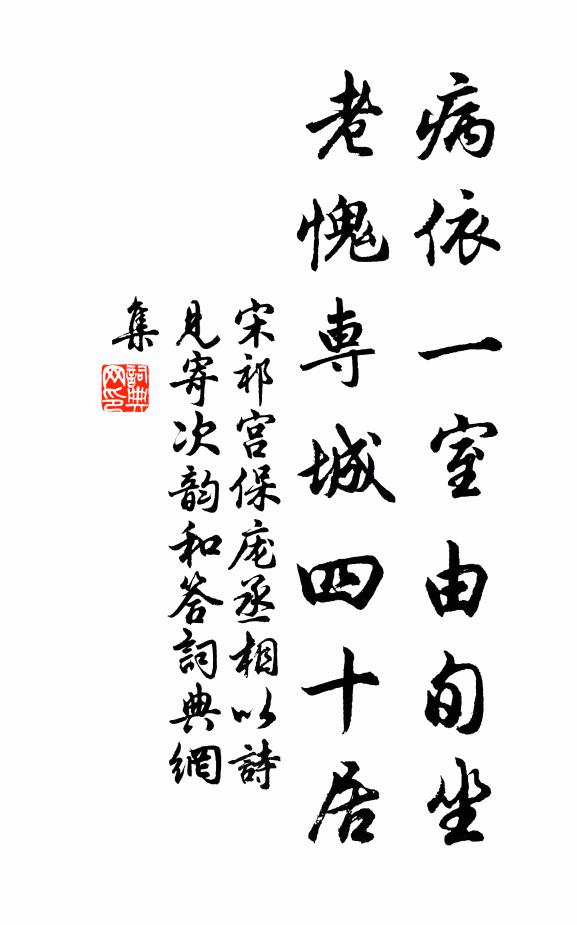 病依一室由旬坐
老愧専城四十居
宋祁宮保庞丞相以詩
見寄次韵和答詞典網
集
詞典网印